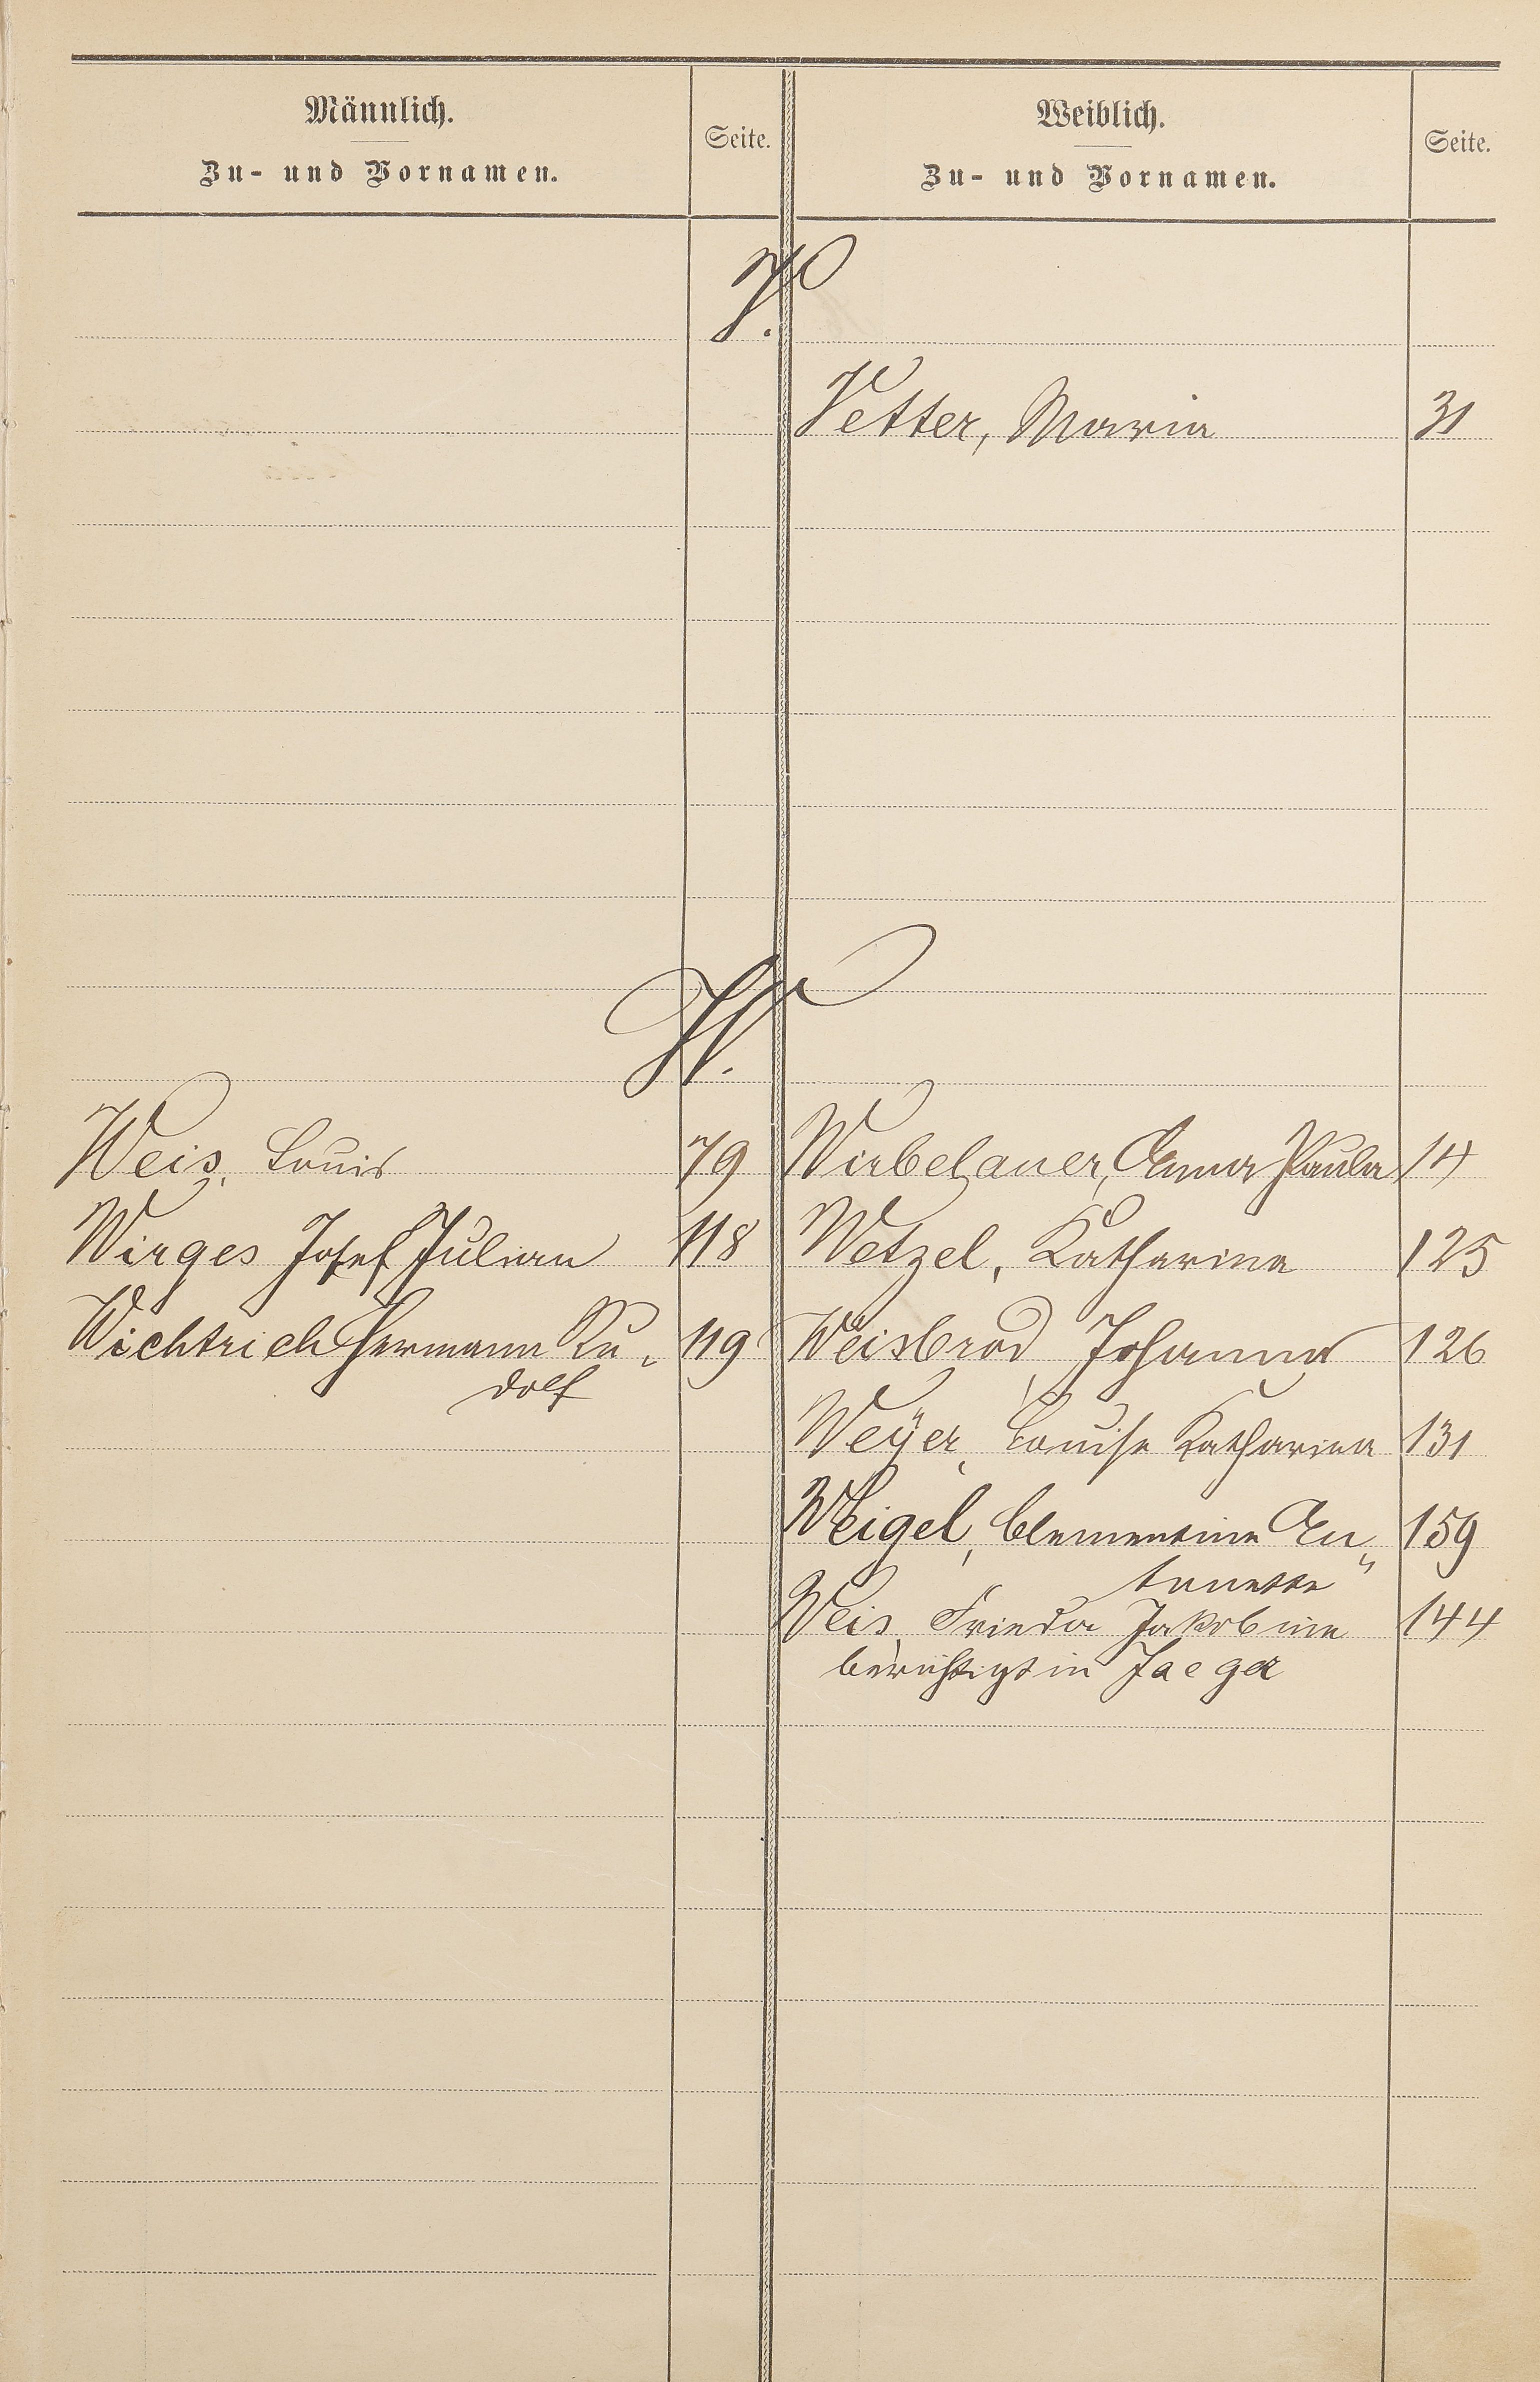 Männlich.
Zu- und Vornamen.
Seite.
Weiblich.
Zu- und Vornamen.
Seite.
V.
Vetter, Maria 31
W.
Weis, Louis 79
Wirbelauer, Anna Paula 14
Wirges Josef Julian 118
Wetzel, Katharina 125
Wichtrich Hermann Ru-
dolf 119
Weisbrod, Johanna 126
Weÿer, Louise Katharina 131
Weigel, Clementine An„
tonette" 159
Weis, Frieda Jakobine 144
berichtigt in Jaeger